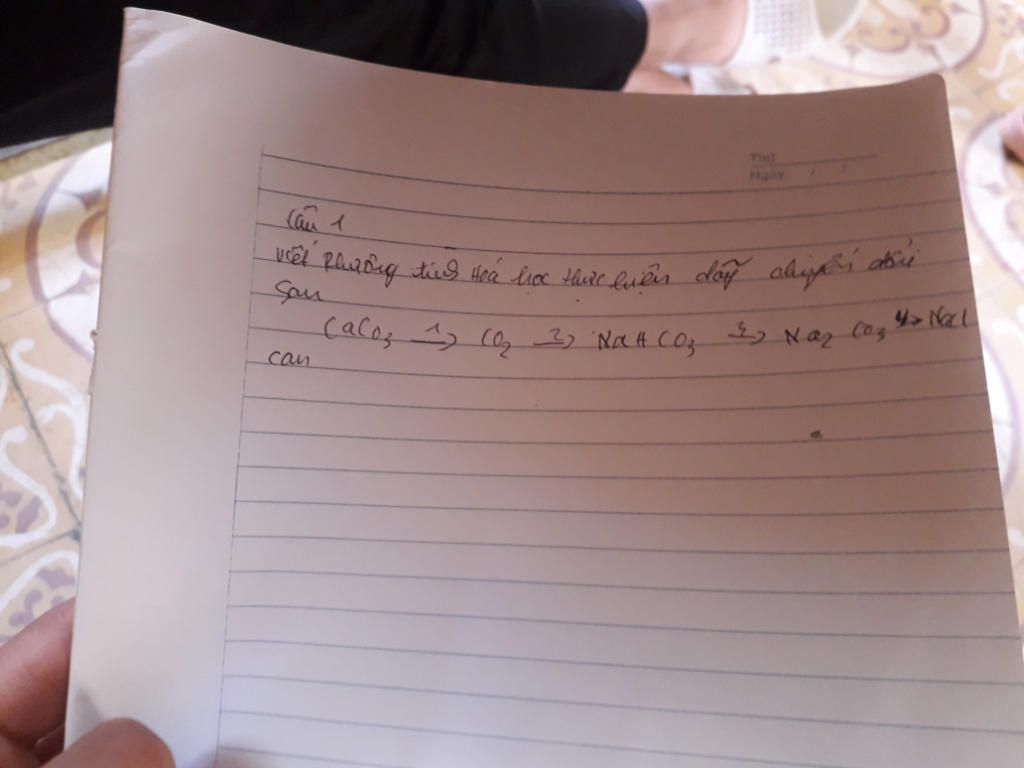 Thứ
Ngày / /
Câu 1
viết phương trình Hoá học thực hiện dãy chuyển đổi
sau
CaCO3 1→ CO2 2→ NaHCO3 3→ Na2CO3 4→ NaCl